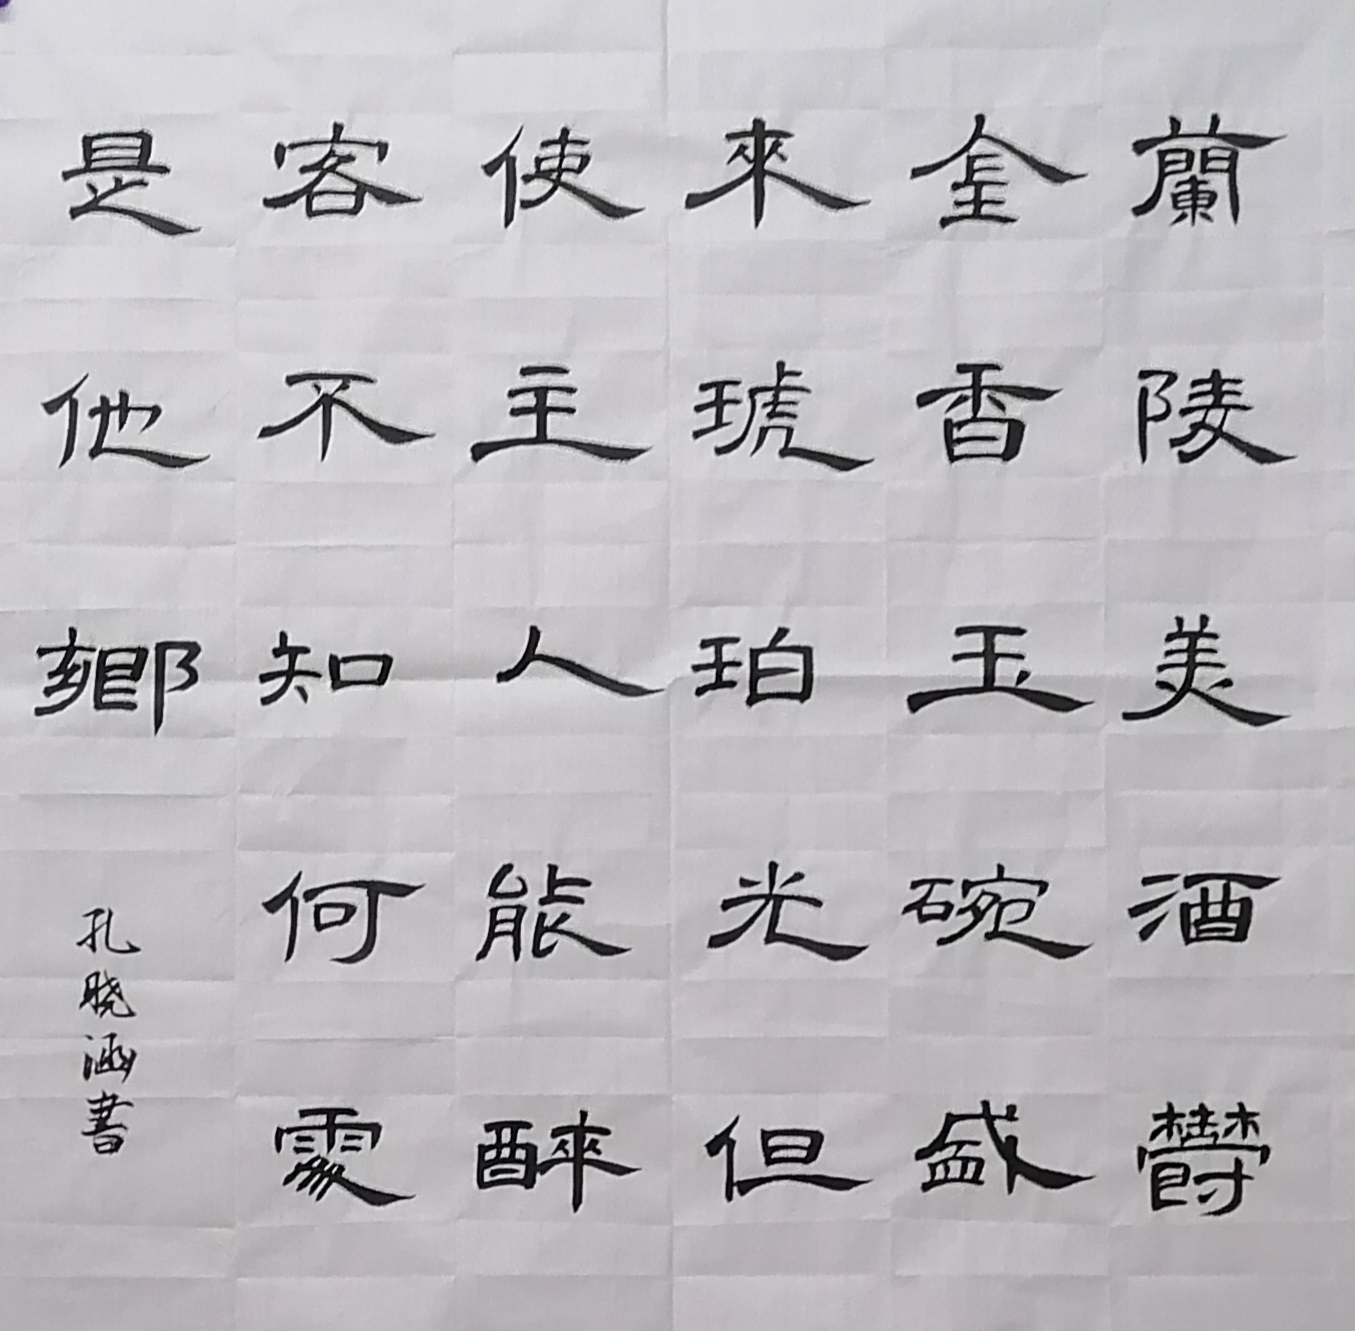 蘭陵美酒鬱
金香玉碗盛
來琥珀光但
使主人能醉
客不知何處
是他鄉
孔晓涵書